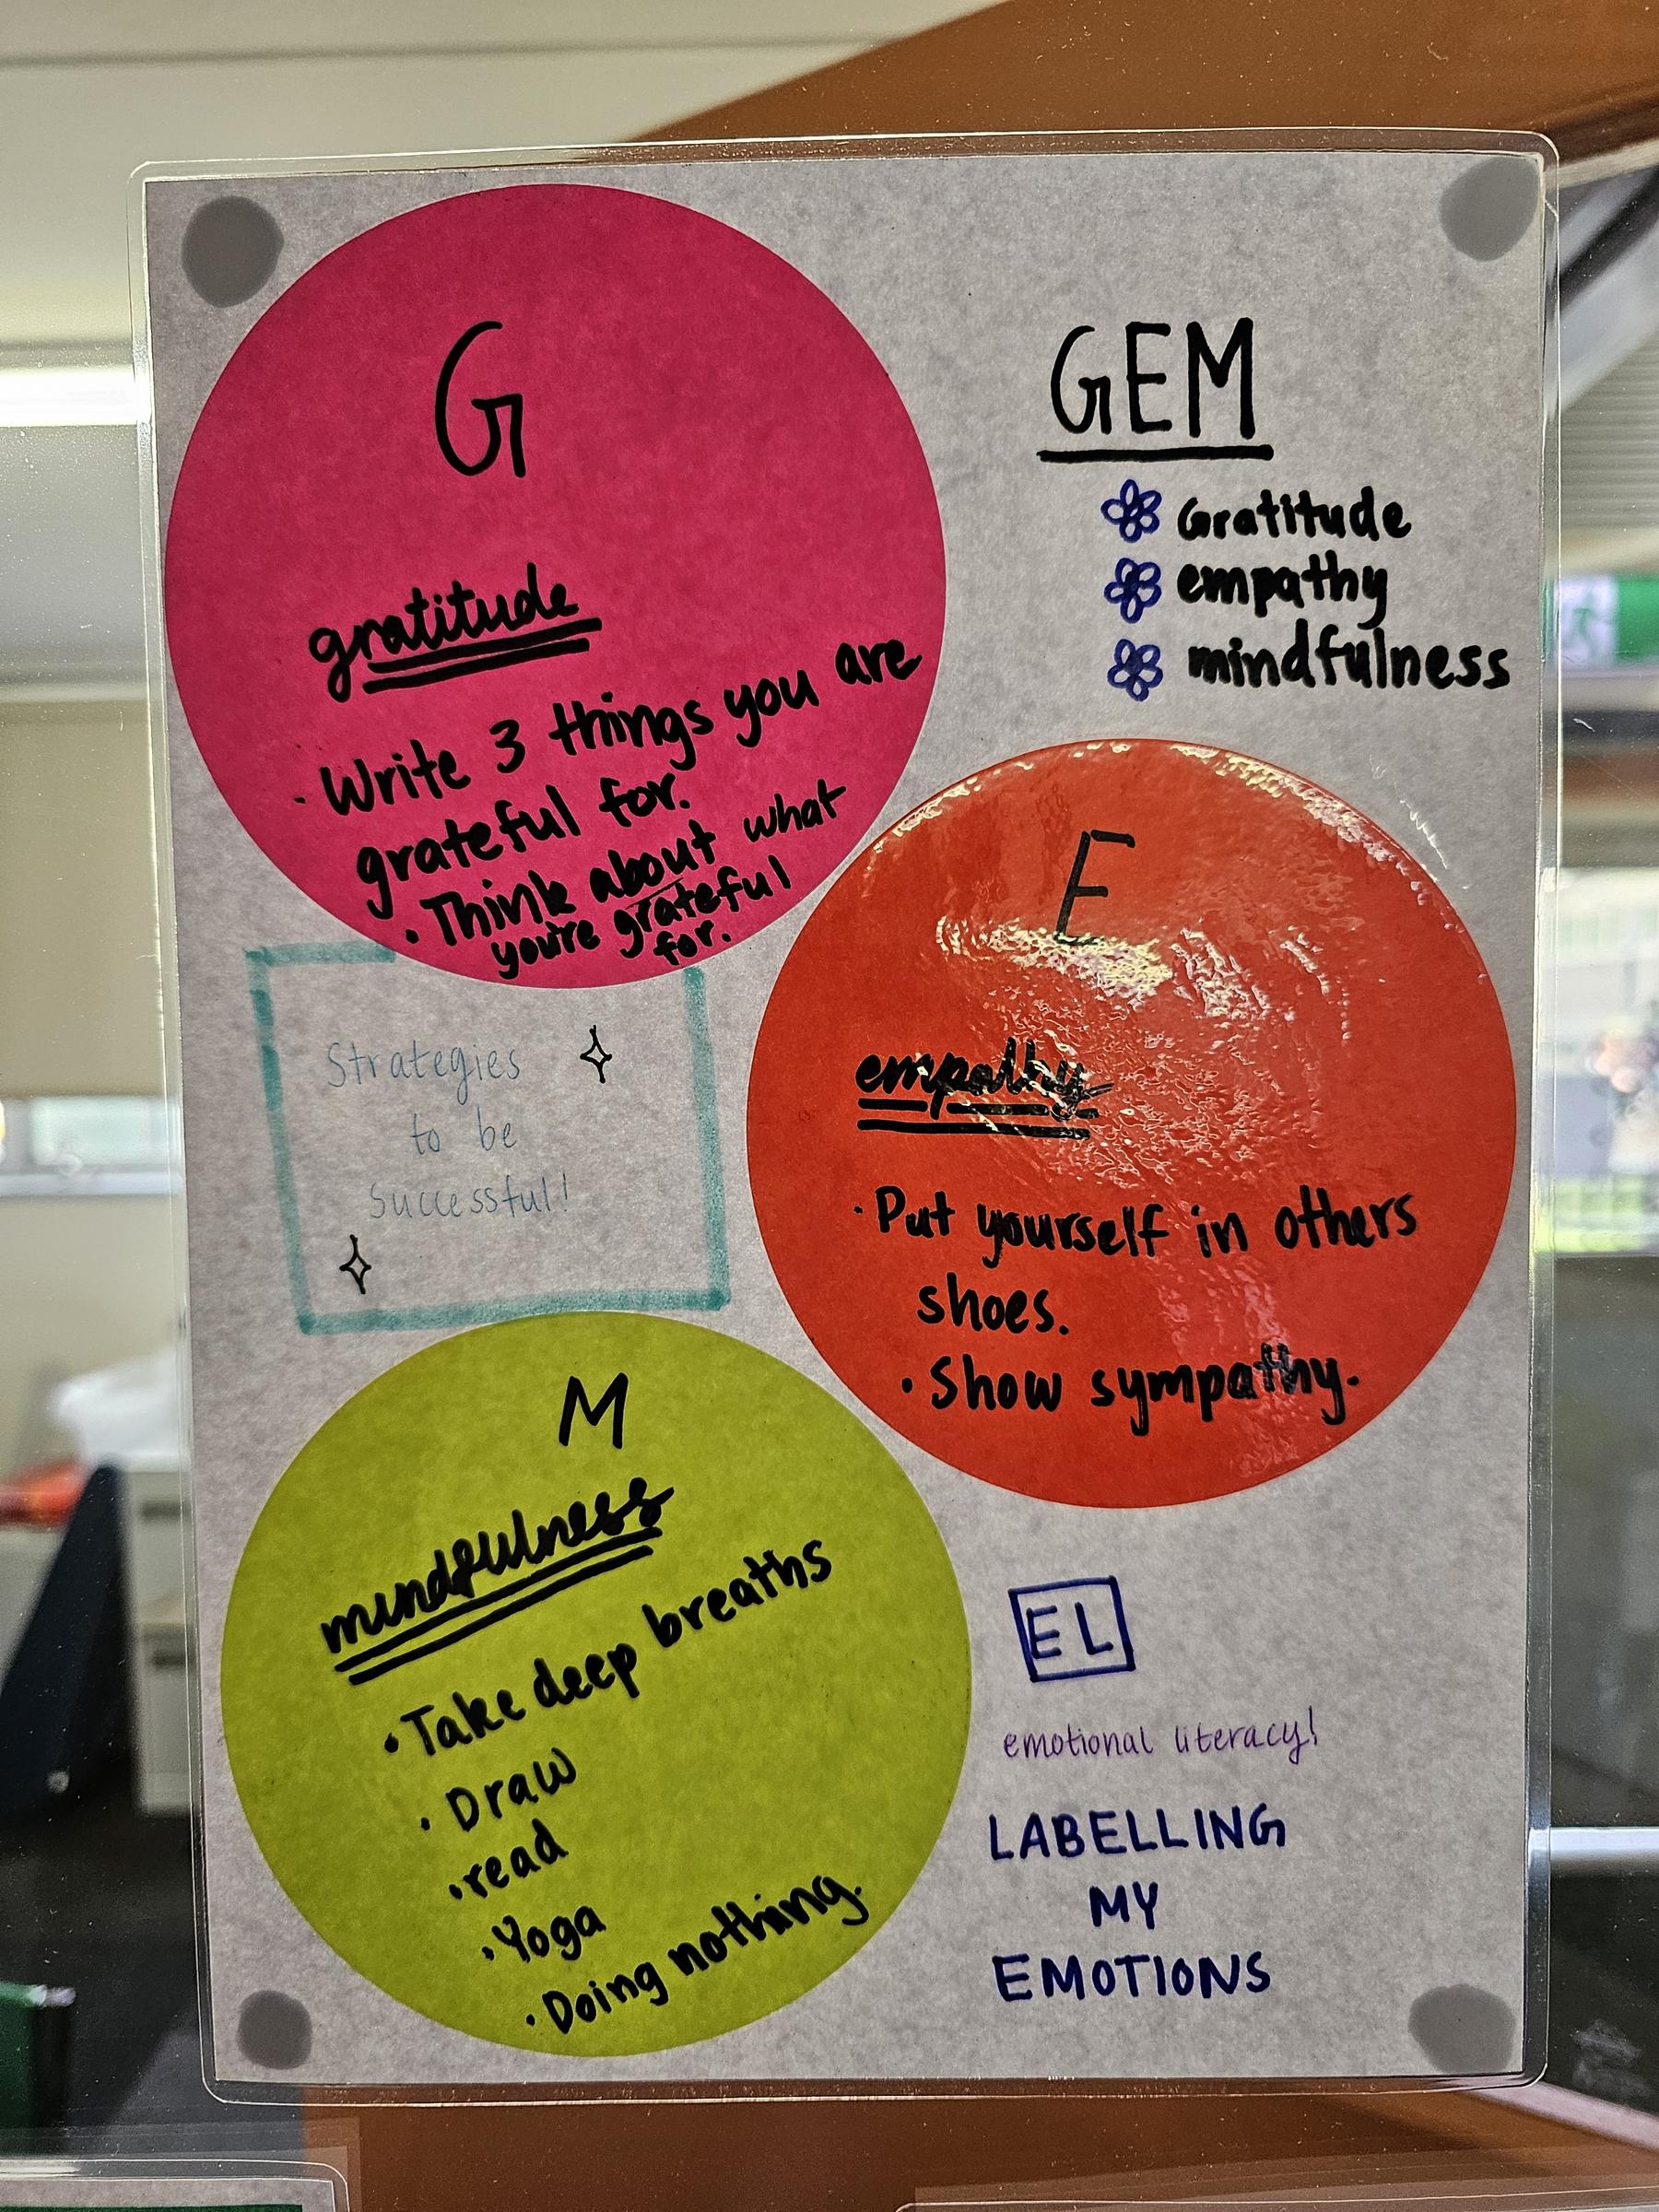 G
gratitude
· Write 3 things you are
grateful for.
· Think about what
you're grateful
for.
GEM
Gratitude
empathy
mindfulness
E
empathy
· Put yourself in others
shoes.
· Show sympathy.
Strategies
to be
Successful!
M
mindfulness
· Take deep breaths
· Draw
· read
· Yoga
· Doing nothing.
EL
emotional literacy!
LABELLING
MY
EMOTIONS